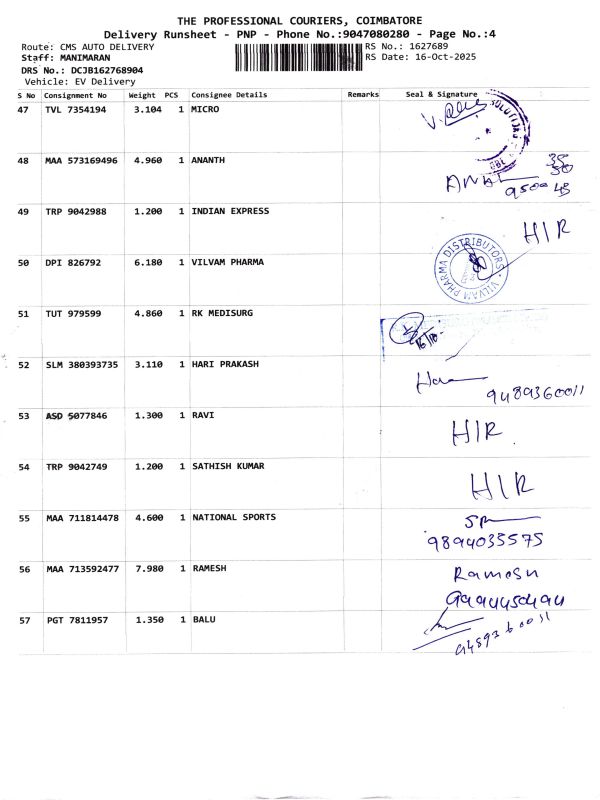 THE PROFESSIONAL COURIERS, COIMBATORE
Delivery Runsheet - PNP - Phone No.:9047080280 - Page No.:4
Route: CMS AUTO DELIVERY RS No.: 1627689
Staff: MANIMARAN RS Date: 16-Oct-2025
DRS No.: DCJB162768904
Vehicle: EV Delivery
S No Consignment No Weight PCS Consignee Details Remarks Seal & Signature
47 TVL 7354194 3.104 1 MICRO
48 MAA 573169496 4.960 1 ANANTH
49 TRP 9042988 1.200 1 INDIAN EXPRESS H/R
50 DPI 826792 6.180 1 VILVAM PHARMA VILVAM PHARMA DISTRIBUTORS
51 TUT 979599 4.860 1 RK MEDISURG 16/10
52 SLM 380393735 3.110 1 HARI PRAKASH
9489360011
53 ASD 5077846 1.300 1 RAVI H/R
54 TRP 9042749 1.200 1 SATHISH KUMAR H/R
55 MAA 711814478 4.600 1 NATIONAL SPORTS
9894035575
56 MAA 713592477 7.980 1 RAMESH Ramesh
57 PGT 7811957 1.350 1 BALU
9489360011